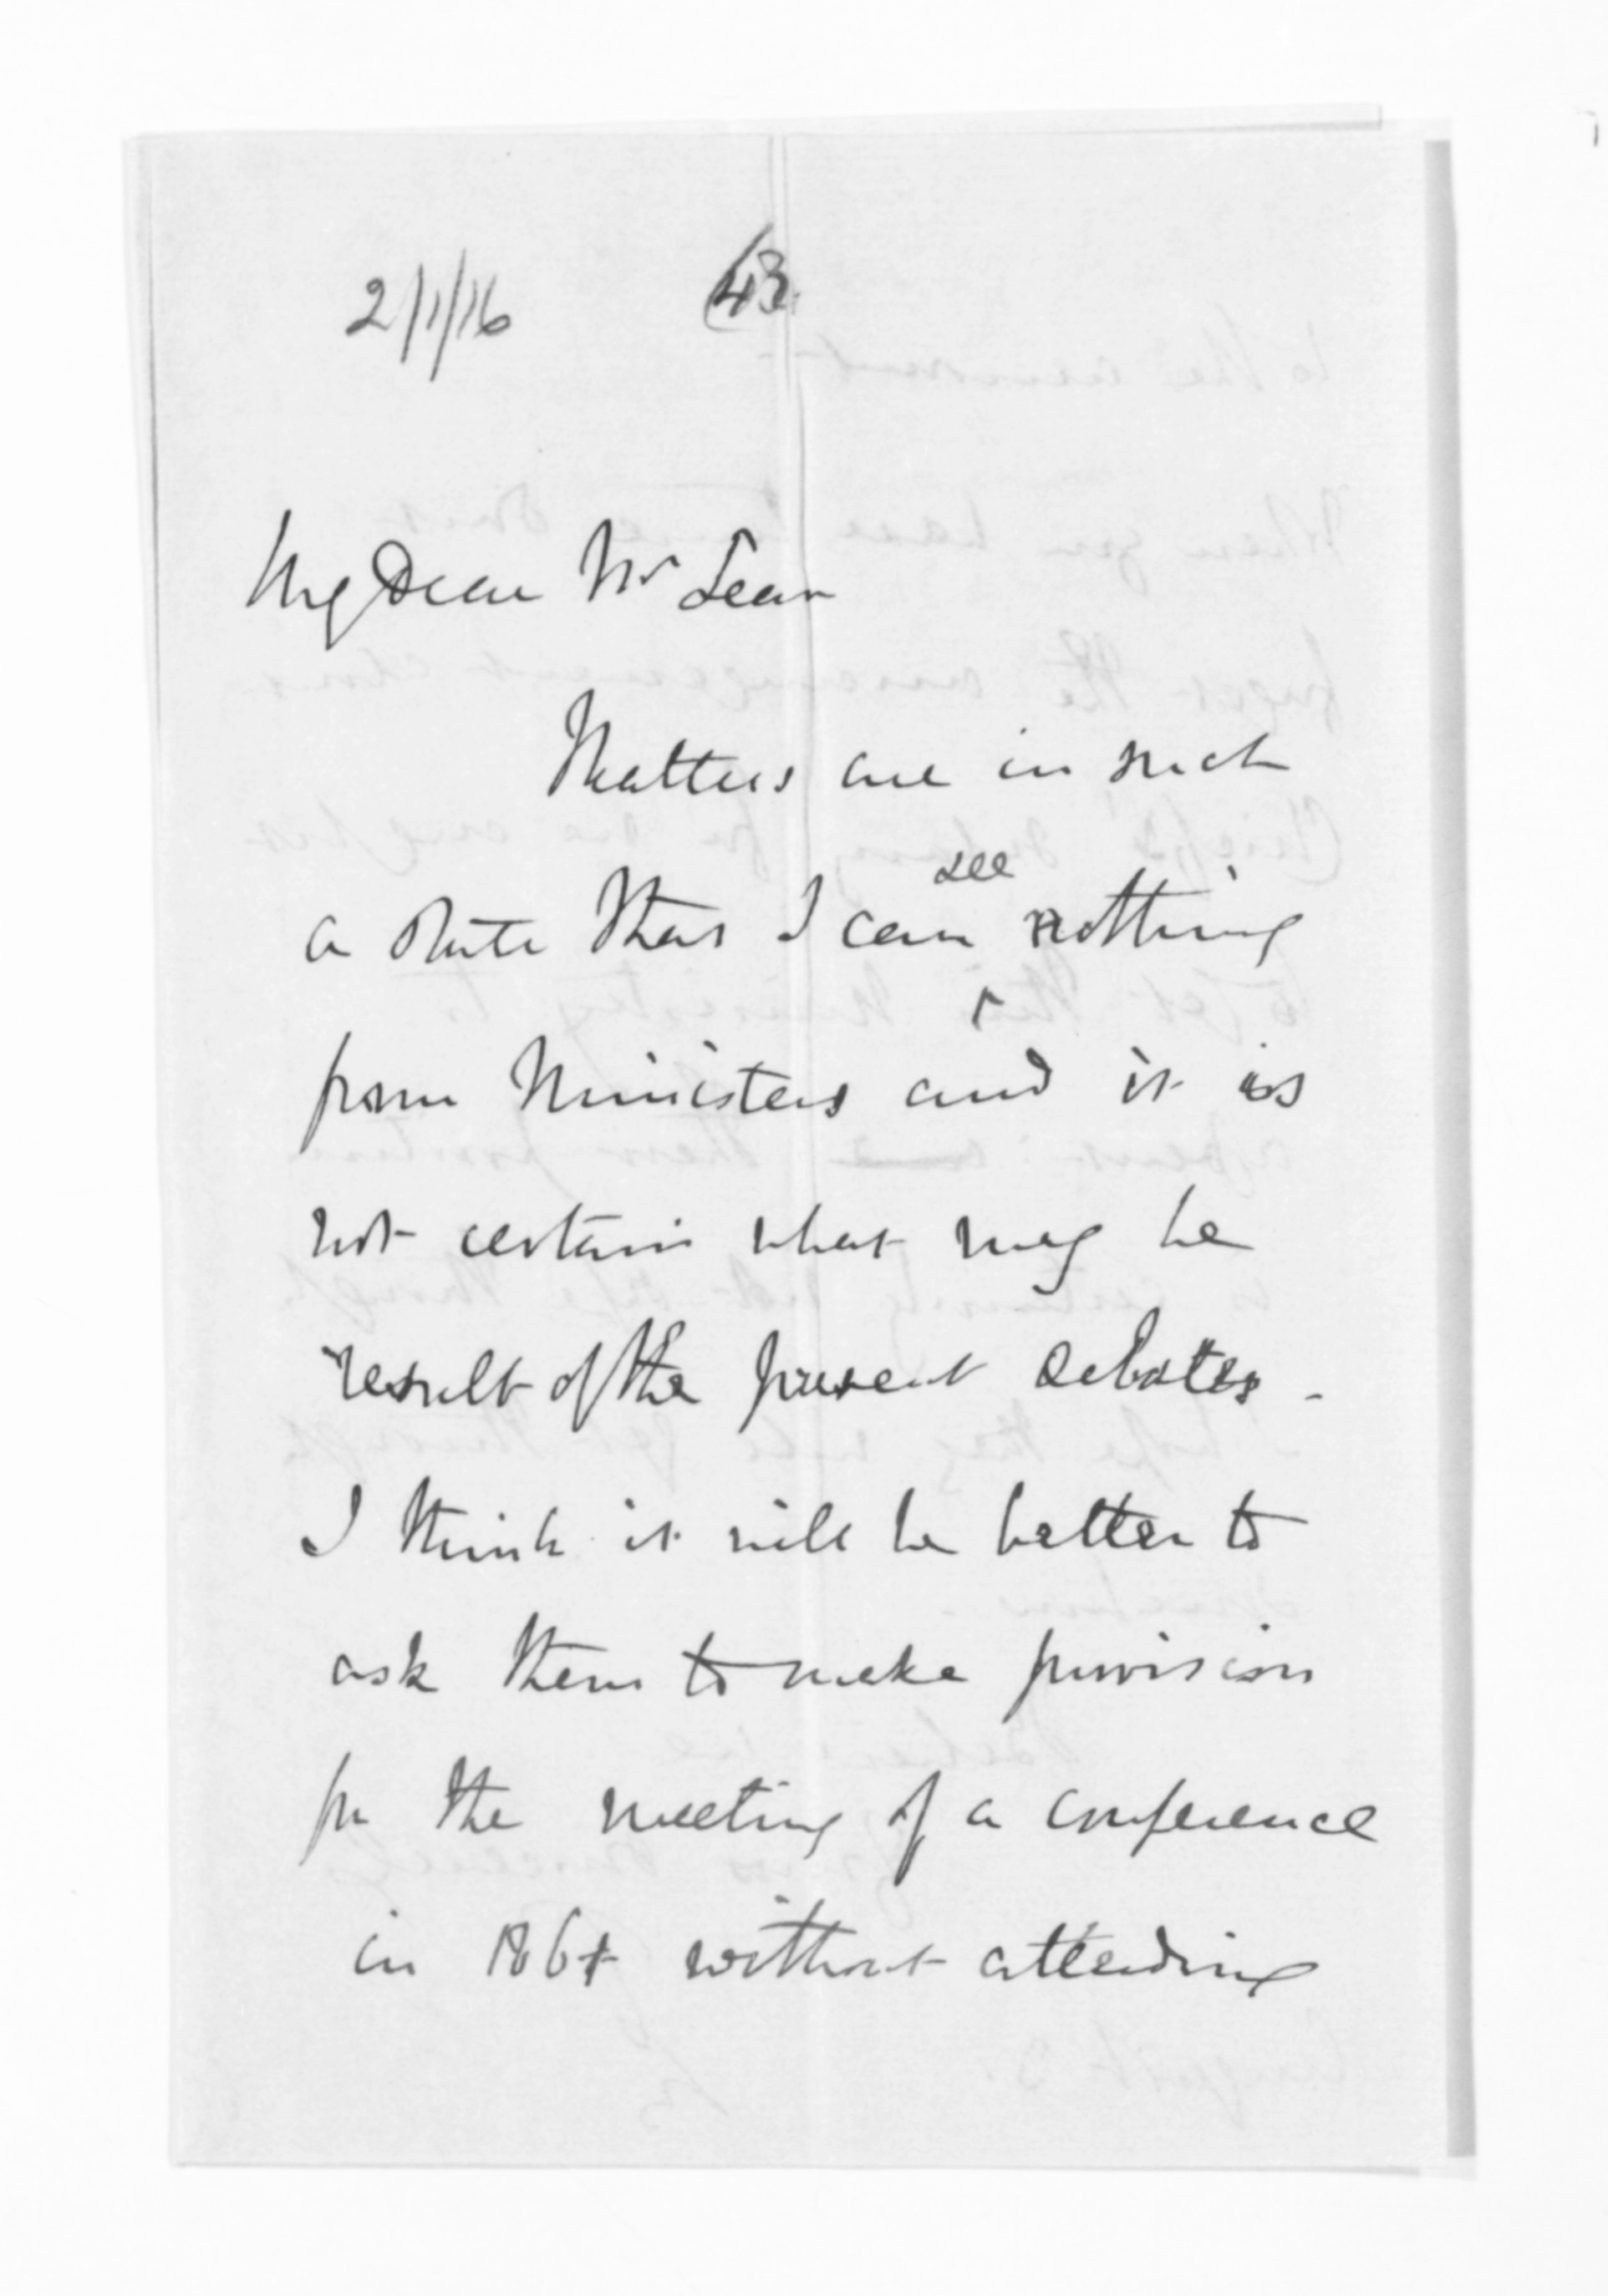 2/1/16 43.
My Dear Mr Lean
Matters are in such
a state that I can see nothing
from Ministers and it is
not certain what may be
result of the present debates -
I think it will be better to
ask them to make provision
for the meeting of a conference
in 1861 without attending